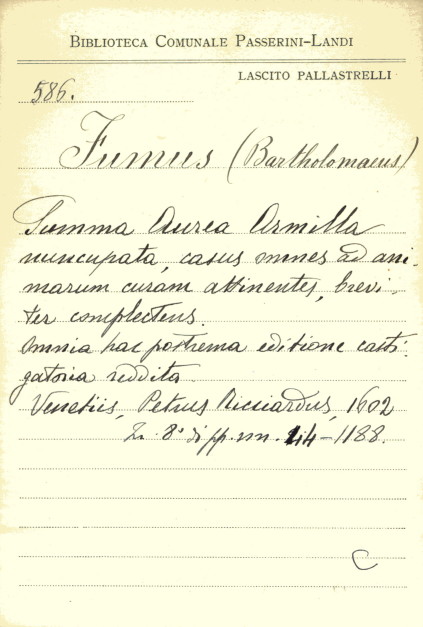 BIBLIOTECA COMUNALE PASSERINI-LANDI
LASCITO PALLASTRELLI
586.
Fumus (Bartholomaeus)
Summa Aurea Armilla
nuncupata, casus omnes ad ani-
marum curam attinentes, brevi-
ter complectens.
Omnia hac postrema editione casti-
gatoria reddita
Venetiis, Petrus Ricciardus, 1602
In 8° di pp. nn. 44-1188.
C